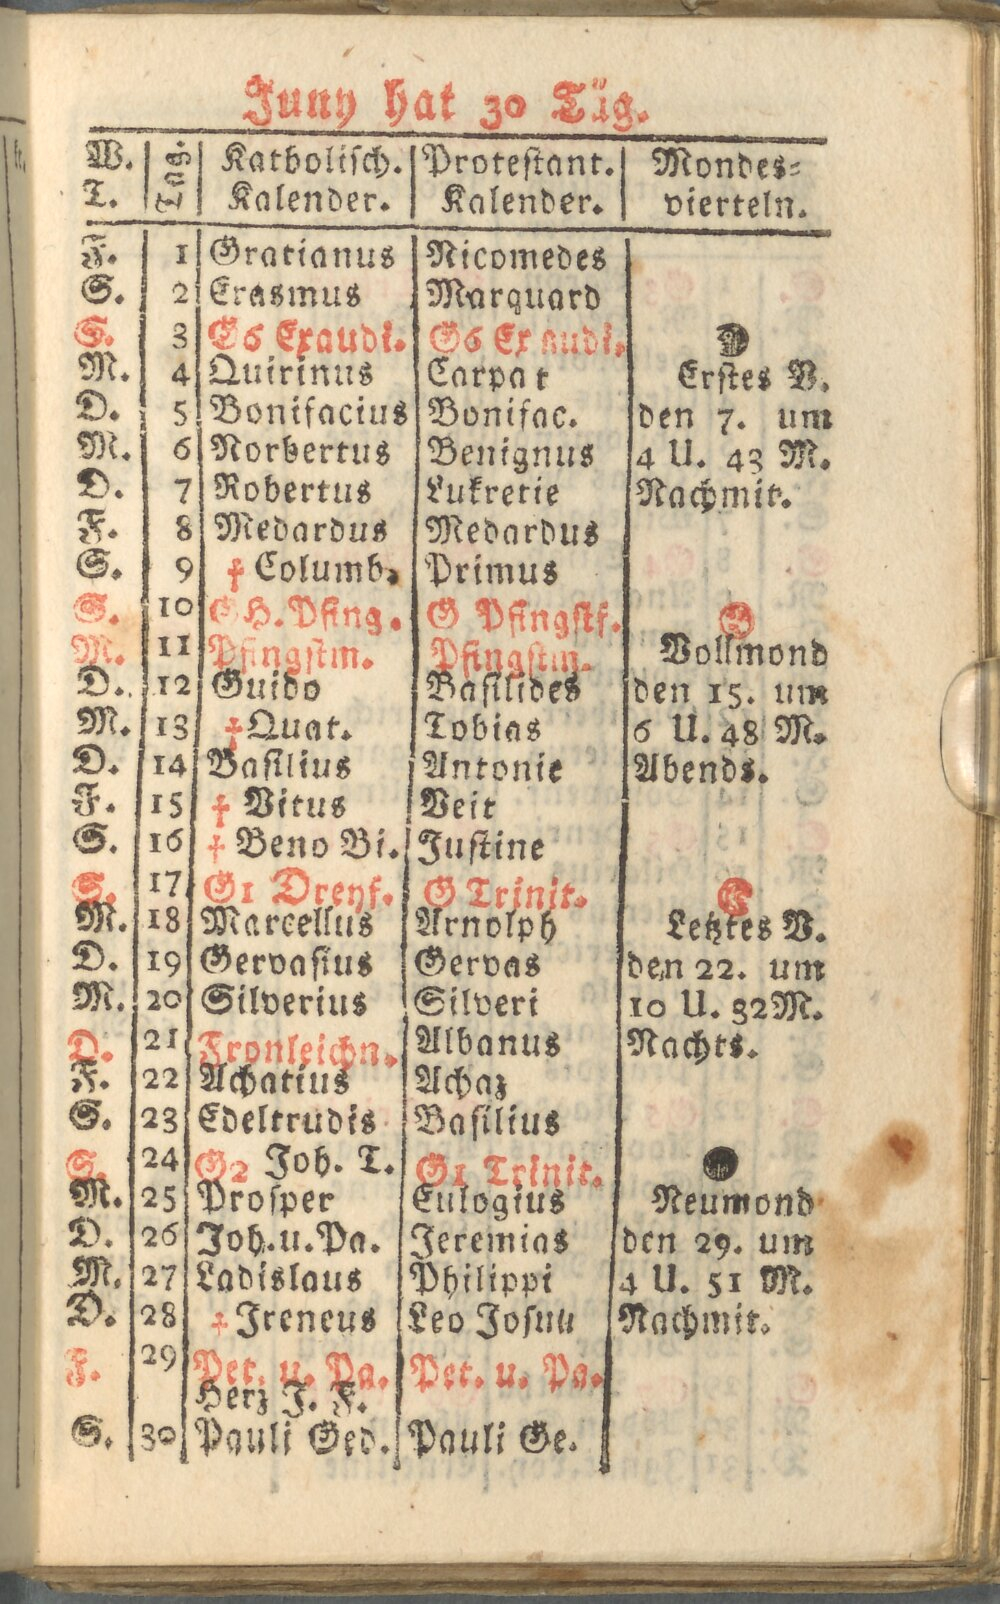 Juny hat 30 Täg.
W. T. Tag. Katholisch. Kalender. Protestant. Kalender. Mondes= vierteln.
F. 1 Gratianus Nicomedes
S. 2 Erasmus Marquard
S. 3 E6 Exaudi. G6 Exaudi.
M. 4 Quirinus Carpat Erstes V.
D. 5 Bonifacius Bonifac. den 7. um
M. 6 Norbertus Benignus 4 U. 43 M.
D. 7 Robertus Lukretie Nachmit.
F. 8 Medardus Medardus
S. 9 † Columb. Primus
S. 10 G H. Pfing. G Pfingstf.
M. 11 Pfingstm. Pfingstm. Vollmond
D. 12 Guido Basilides den 15. um
M. 13 † Quat. Tobias 6 U. 48 M.
D. 14 Basilius Antonie Abends.
F. 15 † Vitus Veit
S. 16 † Beno Bi. Justine
S. 17 G1 Dreyf. G Trinit.
M. 18 Marcellus Arnolph Letztes V.
D. 19 Gervasius Gervas den 22. um
M. 20 Silverius Silveri 10 U. 32 M.
D. 21 Fronleichn. Albanus Nachts.
F. 22 Achatius Achaz
S. 23 Edeltrudis Basilius
S. 24 G2 Joh. T. G1 Trinit.
M. 25 Prosper Eulogius Neumond
D. 26 Joh. u. Pa. Jeremias den 29. um
M. 27 Ladislaus Philippi 4 U. 51 M.
D. 28 † Ireneus Leo Josua Nachmit.
F. 29 Pet. u. Pa. Pet. u. Pa.
Herz J. F.
S. 30 Pauli Ged. Pauli Ge.